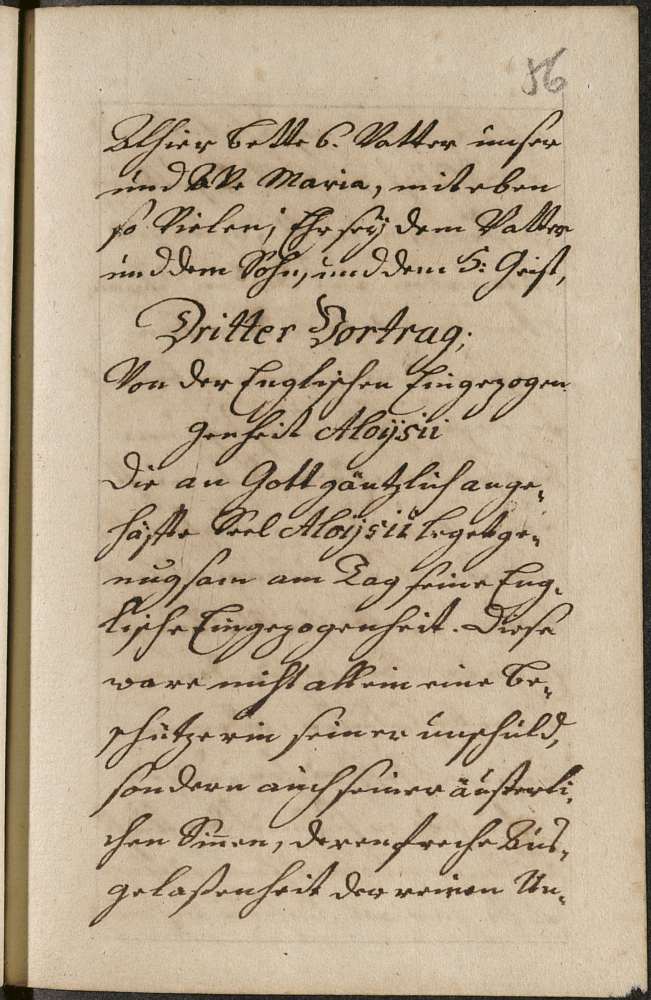 56
Alhier bette 6. Vatter unser
und Ave Maria, mit eben
so Vielen; Ehr seÿ dem Vatter
und dem Sohn, und dem H: Geist,
Dritter Vortrag;
Von der Englischen Eingezogen
genheit Aloÿsii
Die an Gott gäntzlich ange,
häffte Seel Aloÿsii leget ge,
nugsam am Tag seine Eng,
lische Eingezogenheit. Diese
ware nicht allein eine Be,
schützerin seiner unschuld,
sondern auch seiner äusserli,
chen Sinnen, deren freche Aus,
gelaßenheit der reinen Un,